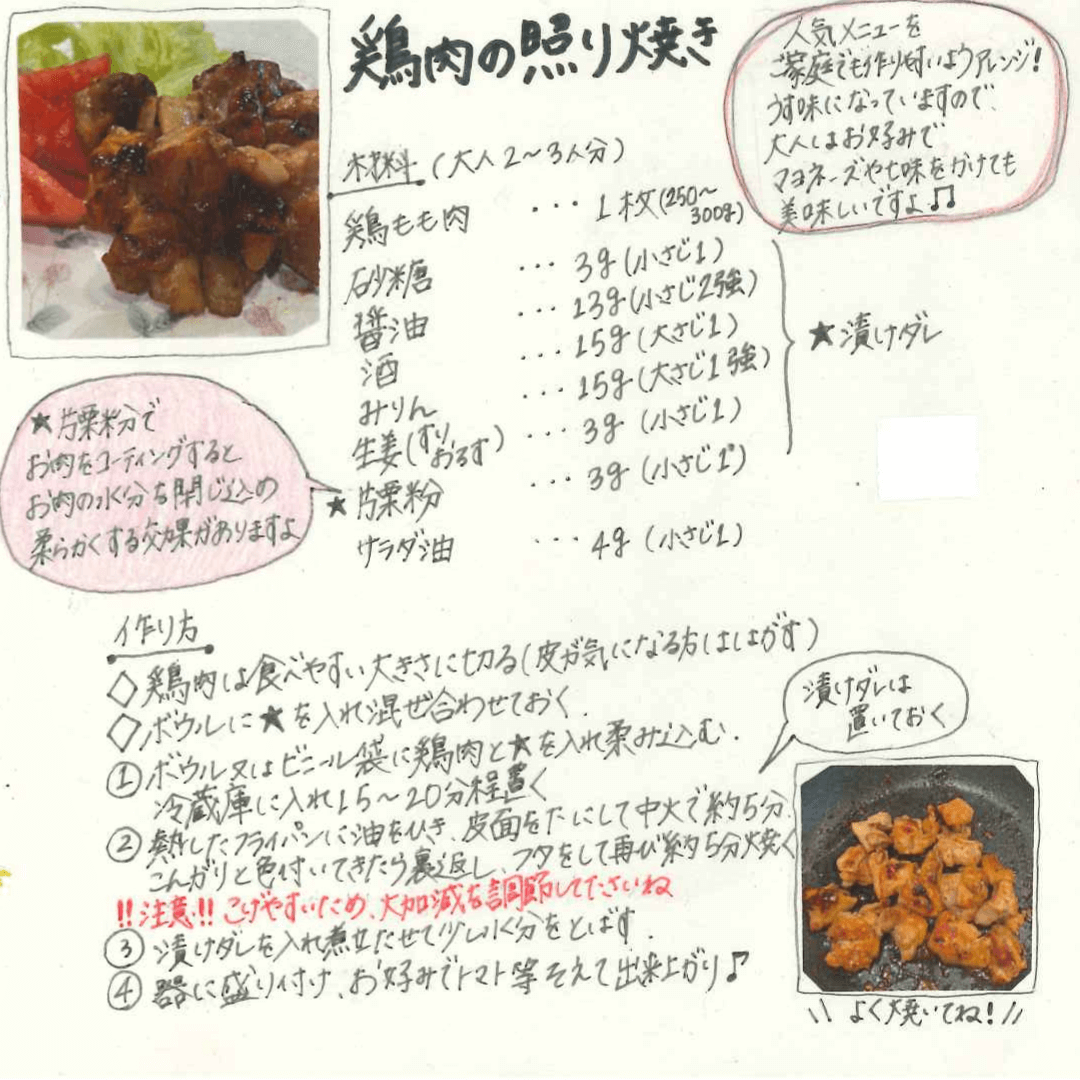 鶏肉の照り焼き
人気メニューを
ご家庭でも作り易いようアレンジ!
うす味になっていますので、
大人はお好みで
マヨネーズや七味をかけても
美味しいですよ♫
材料(大人2〜3人分)
鶏もも肉 ・・・ 1枚(250〜300g)
砂糖 ・・・ 3g(小さじ1)
醤油 ・・・ 13g(小さじ2強)
酒 ・・・ 15g(大さじ1)
みりん ・・・ 15g(大さじ1強)
生姜(すりおろす) ・・・ 3g(小さじ1)
★片栗粉 ・・・ 3g(小さじ1)
サラダ油 ・・・ 4g(小さじ1)
★漬けダレ
★片栗粉で
お肉をコーティングすると
お肉の水分を閉じ込め
柔らかくする効果がありますよ
作り方
◇鶏肉は食べやすい大きさに切る(皮が気になる方ははがす)
◇ボウルに★を入れ混ぜ合わせておく.
①ボウル又はビニール袋に鶏肉と★を入れ柔み込む.
冷蔵庫に入れ15〜20分程置く
②熱したフライパンに油をひき、皮面を下にして中火で約5分.
こんがりと色付いてきたら裏返し、フタをして再び約5分焼く
!!注意!! こげやすいため、火加減を調節してださいね
③漬けダレを入れ煮立たせて少し水分をとばす.
④器に盛り付け、お好みでトマト等そえて出来上がり♪
漬けダレは
置いておく
\\ よく焼いてね! //